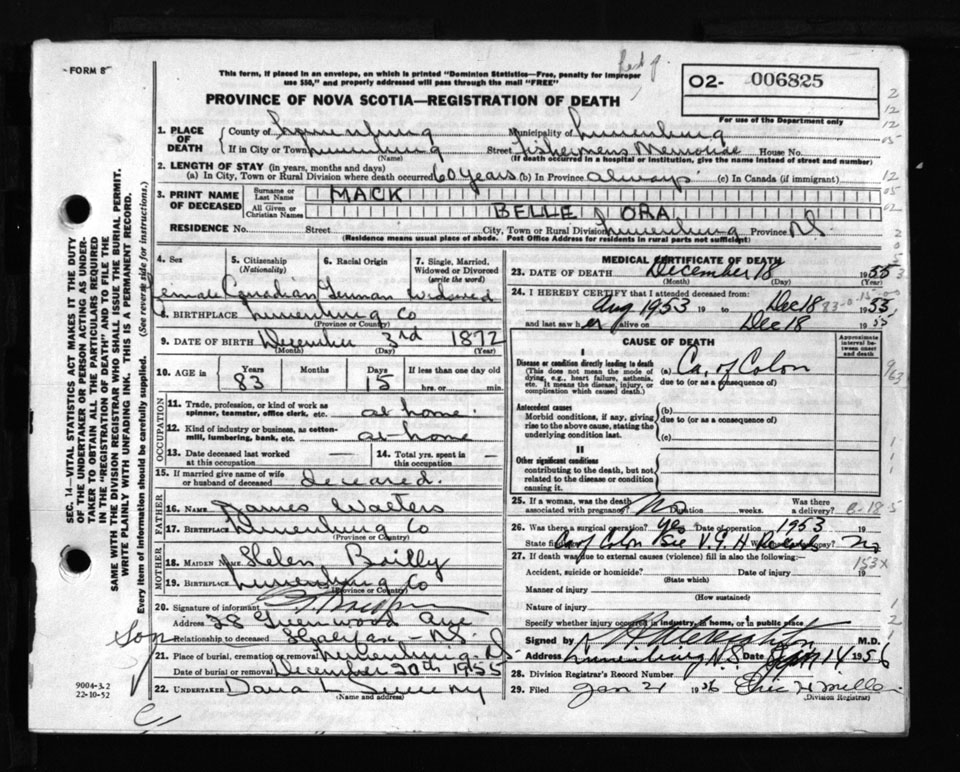 FORM 8
This form, if placed in an envelope, on which is printed "Dominion Statistics—Free, penalty for improper
use $50," and properly addressed will pass through the mail "FREE"
O2- 006825
For use of the Department only
PROVINCE OF NOVA SCOTIA—REGISTRATION OF DEATH
1. PLACE OF DEATH
County of Lunenburg Municipality of Lunenburg
If in City or Town Lunenburg (Name) Street Fishermens Memorial House No.
(If death occurred in a hospital or institution, give the name instead of street and number)
2. LENGTH OF STAY (in years, months and days)
(a) In City, Town or Rural Division where death occurred 60 years (b) In Province always (c) In Canada (if immigrant)
3. PRINT NAME OF DECEASED
Surname or Last Name MACK
All Given or Christian Names BELLE ORA
RESIDENCE No. Street City, Town or Rural Division Lunenburg Province N.S.
(Residence means usual place of abode. Post Office Address for residents in rural parts not sufficient)
4. Sex 5. Citizenship (Nationality) 6. Racial Origin 7. Single, Married, Widowed or Divorced (write the word)
Female Canadian German Widowed
8. BIRTHPLACE Lunenburg Co
(Province or Country)
9. DATE OF BIRTH December 3rd 1872
(Month) (Day) (Year)
10. AGE in Years 83 Months Days 15 If less than one day old hrs. or min.
OCCUPATION
11. Trade, profession, or kind of work as spinner, teamster, office clerk, etc. at home.
12. Kind of industry or business, as cotton-mill, lumbering, bank, etc. at home
13. Date deceased last worked at this occupation — 14. Total yrs. spent in this occupation —
15. If married give name of wife or husband of deceased deceased.
FATHER
16. NAME James Walters
17. BIRTHPLACE Lunenburg Co
(Province or Country)
MOTHER
18. MAIDEN NAME Helen Bailly
19. BIRTHPLACE Lunenburg Co
(Province or Country)
20. Signature of informant
Address 28 Greenwood Ave
Son Relationship to deceased Halifax - N.S.
21. Place of burial, cremation or removal Lunenburg N.S.
Date of burial or removal December 20th 1955
22. UNDERTAKER Dana L Sweeny
(Name and address)
9004-3.2
22-10-52
MEDICAL CERTIFICATE OF DEATH
23. DATE OF DEATH December 18 1955
(Month) (Day) (Year)
24. I HEREBY CERTIFY that I attended deceased from:
Aug 1953 19 to Dec 18 1955
and last saw her alive on Dec 18 1955
CAUSE OF DEATH
Approximate interval between onset and death
I
Disease or condition directly leading to death
(This does not mean the mode of dying, e.g., heart failure, asthenia, etc. It means the disease, injury, or complication which caused death.)
(a) Ca. of Colon
due to (or as a consequence of)
Antecedent causes
Morbid conditions, if any, giving rise to the above cause, stating the underlying condition last.
(b)
due to (or as a consequence of)
(c)
II
Other significant conditions
contributing to the death, but not related to the disease or condition causing it.
25. If a woman, was the death associated with pregnancy? No Duration weeks. Was there a delivery?
26. Was there a surgical operation? Yes Date of operation 1953 19
State findings Ca of Colon See V.G.H. Records Was there autopsy? No
27. If death was due to external causes (violence) fill in also the following:—
Accident, suicide or homicide? Date of injury 19
(State which)
Manner of injury
(How sustained)
Nature of injury
Specify whether injury occurred in industry, in home, or in public place
Signed by H A Creighton M.D.
Address Lunenburg N.S. Date Jan 14 1956
28. Division Registrar's Record Number
29. Filed Jan 21 1956
(Division Registrar)
SEC. 14—VITAL STATISTICS ACT MAKES IT THE DUTY
OF THE UNDERTAKER OR PERSON ACTING AS UNDER-
TAKER TO OBTAIN ALL THE PARTICULARS REQUIRED
IN THE "REGISTRATION OF DEATH" AND TO FILE THE
SAME WITH THE DIVISION REGISTRAR WHO SHALL ISSUE THE BURIAL PERMIT.
WRITE PLAINLY WITH UNFADING INK. THIS IS A PERMANENT RECORD.
Every item of information should be carefully supplied. (See reverse side for instructions.)